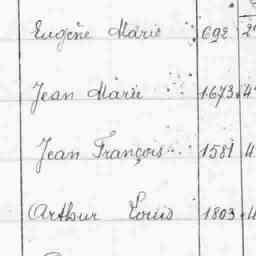 Eugène Marie 692 2
Jean Marie 1673 4
Jean François 1581 4
Arthur Louis 1803 4